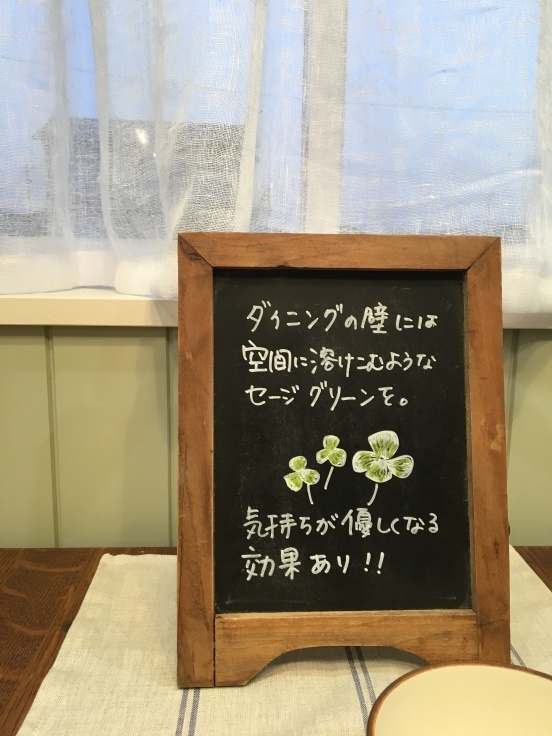 ダイニングの壁には
空間に溶けこむような
セージグリーンを。
気持ちが優しくなる
効果あり!!